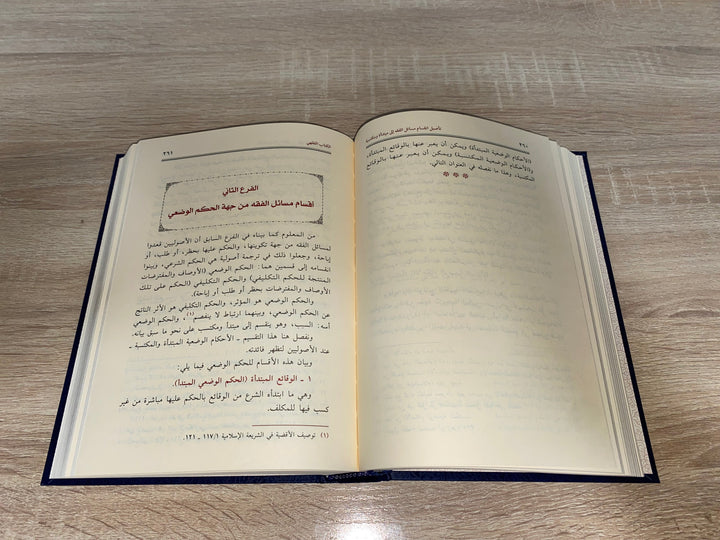 تأصيل انقسام مسائل الفقه إلى مبتدأة ومكتسبة
٣٦٠
(الأحكام الوضعية المبتدأة) ويمكن أن يعبر عنها بالوقائع المبتدأة،
و(الأحكام الوضعية المكتسبة) ويمكن أن يعبر عنها بالوقائع
المكتسبة، وهذا ما نفصله في العنوان التالي.
* * *
الكتاب الفقهي
٣٦١
الفرع الثاني
أقسام مسائل الفقه من جهة الحكم الوضعي
من المعلوم كما بيناه في الفرع السابق أن الأصوليين قعدوا
لمسائل الفقه من جهة تكوينها، والحكم عليها بحظر، أو طلب، أو
إباحة، وجعلوا ذلك في ترجمة أصولية هي الحكم الشرعي، وبينوا
انقسامه إلى قسمين هما: الحكم الوضعي (الأوصاف والمفترضات
المنتجة للحكم التكليفي) والحكم التكليفي (الحكم على تلك
الأوصاف والمفترضات بحظر أو طلب أو إباحة).
والحكم الوضعي هو المؤثر، والحكم التكليفي هو الأثر الناتج
عن الحكم الوضعي، وبينهما ارتباط لا ينفصم(١)، والحكم الوضعي
أسه: السبب، وهو ينقسم إلى مبتدأ ومكتسب على نحو ما سبق بيانه.
ونفصل هنا هذا التقسيم ـ الأحكام الوضعية المبتدأة والمكتسبة ـ
عند الأصوليين لتظهر فائدته.
وبيان هذه الأقسام للحكم الوضعي فيما يلي:
١ ـ الوقائع المبتدأة (الحكم الوضعي المبتدأ).
وهي ما ابتدأه الشرع من الوقائع بالحكم عليها مباشرة من غير
كسب فيها للمكلف.
(١) توصيف الأقضية في الشريعة الإسلامية ١١٧/١ ـ ١٢١.